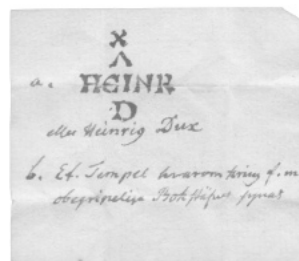 X
Λ
a. HEINR
D
eller Heinrig Dux
b. Et Tempel hvarom kring f.m
obegripelige Bokstäfver synas